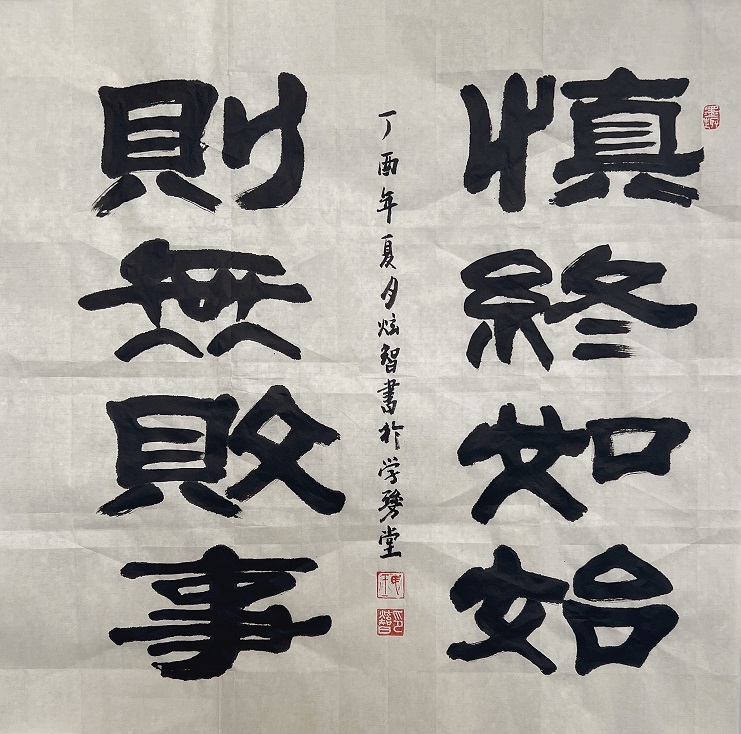 慎終如始
則無敗事
丁酉年夏月炫智書於学贤堂